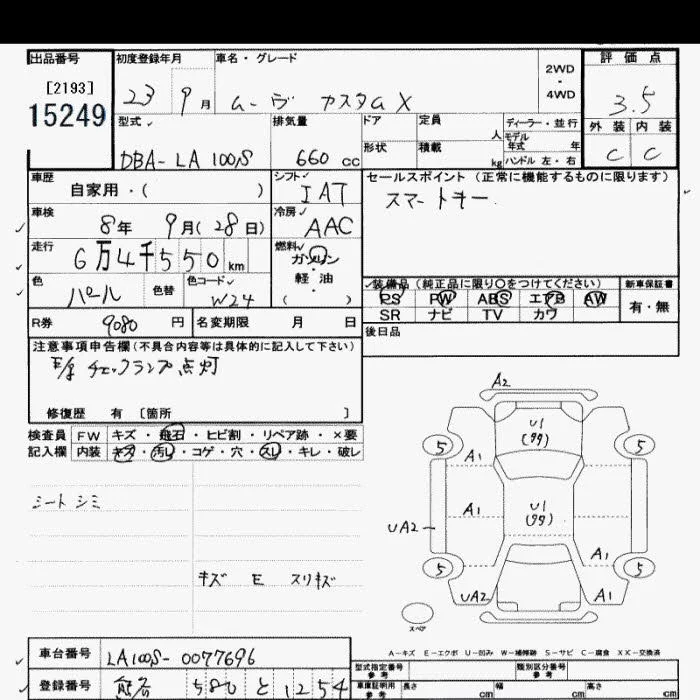 出品番号 初度登録年月 車名・グレード 評価点
[2193]
15249
23 9月 ムーヴ カスタムX 2WD・4WD 3.5
型式 排気量 ドア 定員 人 ディーラー・並行 外装 内装
モデル年式 年
DBA-LA100S 660cc 形状 積載 kg ハンドル 左・右 C C
車歴 シフト セールスポイント(正常に機能するものに限ります)
自家用・( ) IAT スマートキー
車検 冷房
8年 9月(28日) AAC
走行 燃料
6万4千550km ガソリン
軽・油
( )
色 色替 色コード 装備品(純正品に限り○をつけてください) 新車保証書
パール W24 PS PW ABS エアB AW 有・無
SR ナビ TV カワ
R券 9080円 名変期限 月 日 後日品
注意事項申告欄(不具合内容等は具体的に記入して下さい)
チェックランプ点灯
修復歴 有 [箇所 ]
検査員 FW キズ・飛石・ヒビ割・リペア跡・×要
記入欄 内装 キズ・汚レ・コゲ・穴・スレ・キレ・破レ
シートシミ
キズ E スリキズ
A2
U1
(99)
5 5
A1
A1
U1
(99)
UA2
A1
5 5
UA2 A1
スペア
A-キズ E-エクボ U-凹み W-補修跡 S-サビ C-腐食 XX-交換済
車台番号 LA100S-0077696
型式指定番号 参考 類別区分番号 参考
登録番号 熊谷 580 と 1254
車庫証明用 参考 長さ cm 幅 cm 高さ cm